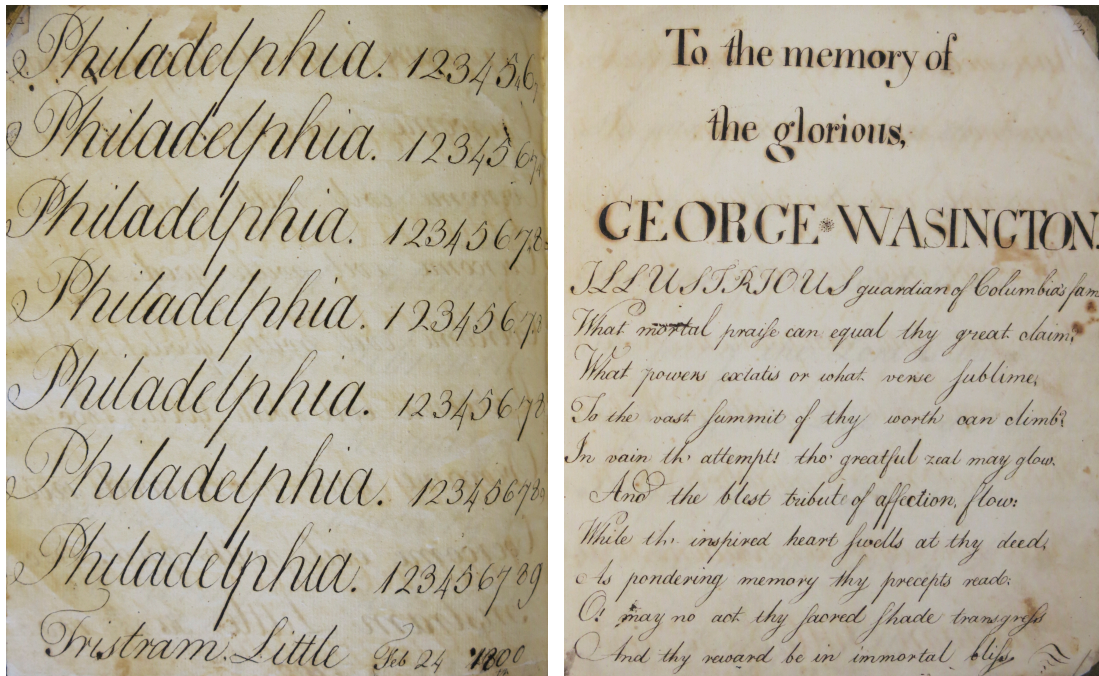 Philadelphia. 123456
Philadelphia. 1234567
Philadelphia. 12345678
Philadelphia. 12345678
Philadelphia. 12345678
Philadelphia. 123456789
Philadelphia. 123456789
Tristram Little Feb 24 1800
To the memory of
the glorious,
GEORGE WASINGTON.
ILLUSTRIOUS guardian of Columbia's fam
What mortal praiſe can equal thy great claim,
What powers extatis or what verse ſublime,
To the vast ſummit of thy worth can climb?
In vain th' attempt! tho' greatful zeal may glow.
And the blest tribute of affection, flow:
While th' inspired heart ſwells at thy deed,
As pondering memory thy precepts read:
O! may no act thy ſacred ſhade transgreſs
And thy reward be in immortal bliſs